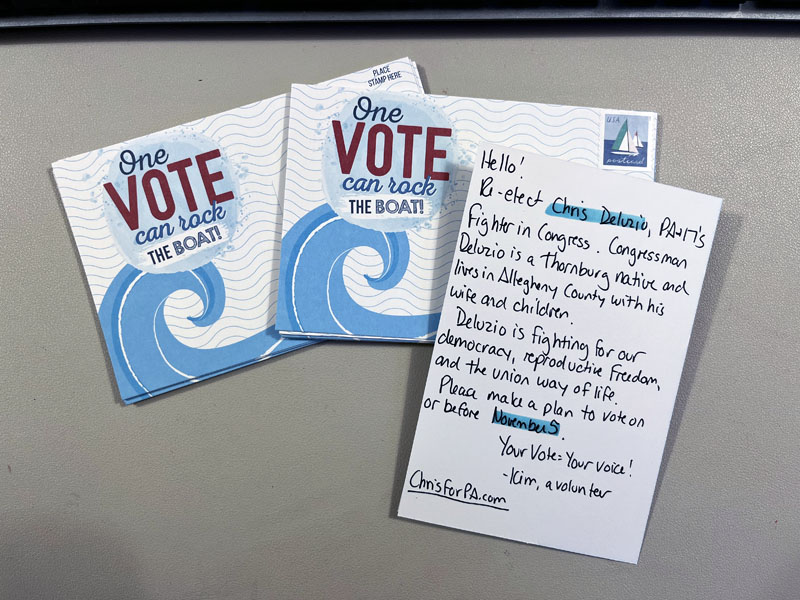 PLACE
STAMP HERE
One
VOTE
can rock
THE BOAT!
One
VOTE
can rock
THE BOAT!
USA
postcard
Hello!
Re-elect Chris Deluzio, PA-17's
Fighter in Congress. Congressman
Deluzio is a Thornburg native and
lives in Allegheny County with his
wife and children.
Deluzio is fighting for our
democracy, reproductive freedom,
and the union way of life.
Please make a plan to vote on
or before November 5.
Your Vote=Your Voice!
-Kim, a volunteer
ChrisForPA.com